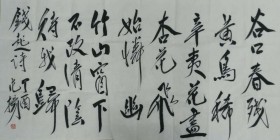 谷口春残
黄鳥稀
辛夷花盡
杏花飛
始憐幽
竹山窗下
不改清陰
待我歸
錢起詩